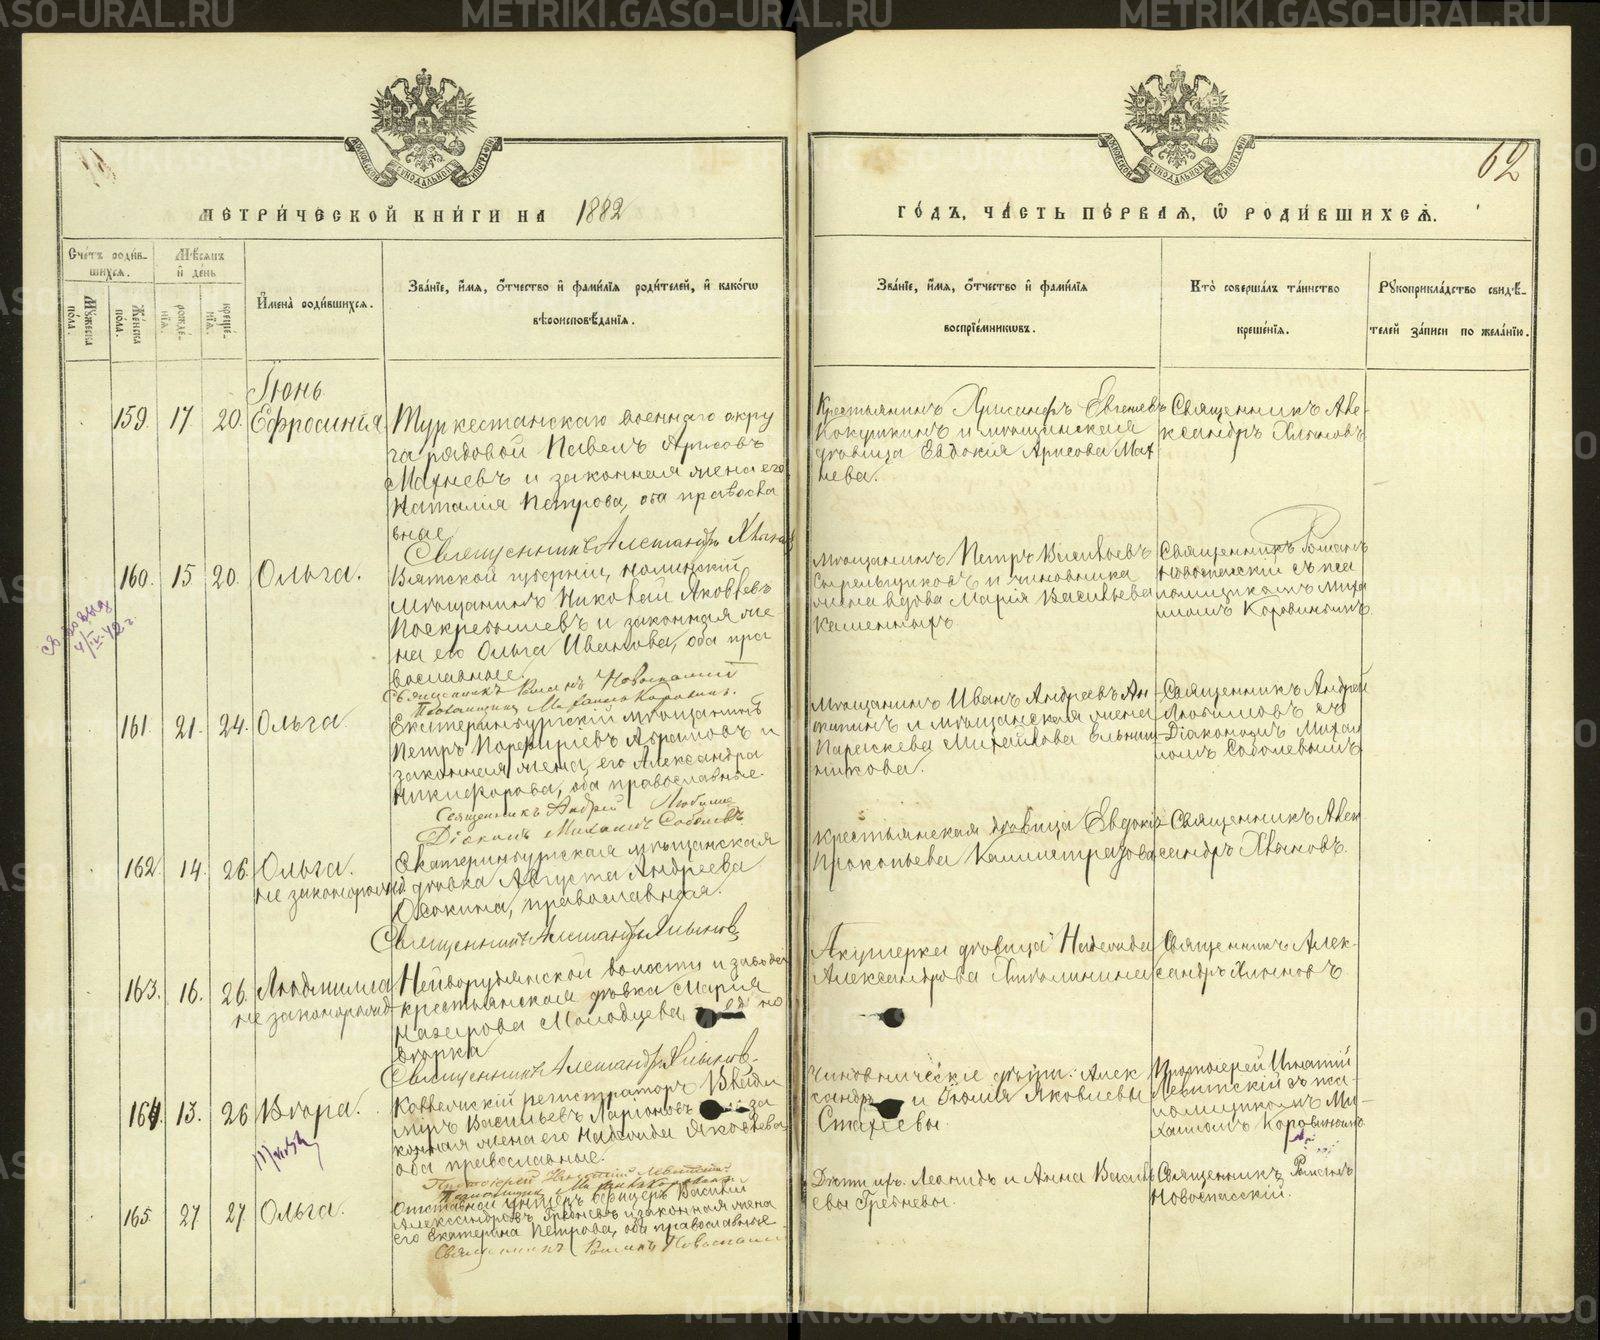 METRIKI.GASO-URAL.RU
62
МЕТРИ́ЧЕСКОЙ КНИ́ГИ НА 1882
ГО́ДЪ, ЧА́СТЬ ПЕ́РВАЯ, Ѡ РОДИ́ВШИХСѦ.
Сче́тъ роди́в-
шихсѧ.
Мꙋжеска по́ла.
Же́нска по́ла.
Мѣ́сѧцъ
и҆ де́нь
рожде́-
нїѧ.
креще́-
нїѧ.
И҆мена̀ роди́вшихсѧ.
Зва́нїе, и҆́мѧ, ѻ҆́тчество и҆ фами́лїѧ роди́телей, и҆ како́гѡ
вѣроисповѣ́данїѧ.
Зва́нїе, и҆́мѧ, ѻ҆́тчество и҆ фами́лїѧ
воспрїе́мникѡвъ.
Кто̀ соверша́лъ та́инство
креще́нїѧ.
Рꙋкоприкла́дство свидѣ́-
телей за́писи по жела́нїю.
Іюнь
159. 17 20. Ефросинія
Туркестанскаго военнаго окру
га рядовой Павелъ Арисовъ
Махневъ и законная жена его
Наталія Петрова, оба правосла
вные
Священникъ Александръ Хлыновъ
Крестьянинъ Хрисанфъ Евгеніевъ
Кокушкинъ и мѣщанская
дѣвица Евдокія Арисова Мах
нева.
Священникъ Але-
ксандръ Хлыновъ
160. 15 20. Ольга.
Вятской губерніи, нолинскій
мѣщанинъ Николай Яковлевъ
Поскребышевъ и законная же
на его Ольга Иванова, оба пра
вославные
Священникъ Романъ Новоспасскій
Псаломщикъ Михаилъ Коровинъ.
мѣщанинъ Петръ Васильевъ
и чиновника
жена вдова Марія Васильева
Каменныхъ
Священникъ Романъ
Новоспасскій съ пса
ломщикомъ Миха
иломъ Коровинымъ
161. 21. 24. Ольга.
Екатеринбургскій мѣщанинъ
Петръ Порфиріевъ Абрамовъ и
законная жена его Александра
Никифорова, оба православные.
Священникъ Андрей Любимовъ
Діаконъ Михаилъ Соболевъ
Мѣщанинъ Иванъ Андреевъ Ан
типинъ и мѣщанская жена
Параскева Михайлова Ельшин
никова.
Священникъ Андрей
Любимовъ съ
Діакономъ Михаи
ломъ Соболевымъ
162. 14. 26. Ольга.
незаконорожд
Екатеринбургская мѣщанская
дѣвка Августа Андреева
Осокина, православная.
Священникъ Александръ Хлыновъ
Крестьянская дѣвица Евдокія
Прокопьева Каллистратова
Священникъ Алек
сандръ Хлыновъ.
163. 16. 26. Людмилла
незаконорожд
Нейворудянской волости и завода
крестьянская дѣвка Марія
Назарова Молодцева,
Священникъ Александръ Хлыновъ.
Акушерка дѣвица Надежда
Александрова
Священникъ Алек-
сандръ Хлыновъ
164. 13. 26 Вѣра.
Коллежскій регистраторъ Влади
міръ Васильевъ Ларіоновъ за
конная жена его Надежда Яковлева
оба православные.
Протоіерей Игнатій Левитскій
Псаломщикъ Михаилъ Коровинъ
Чиновническіе дѣти: Алек
сандръ и Юлія Яковлевы
Стахіевы
Протоіерей Игнатій
Левитскій съ пса-
ломщикомъ Ми-
хаиломъ Коровинымъ
165. 27 27 Ольга.
Отставной унтеръ офицеръ Василій
Александровъ Гребневъ и законная жена
его Екатерина Петрова, оба православные
Священникъ Романъ Новоспасскій
Дѣти Леонидъ и Анна Василь
евы Гребневы
Священникъ Романъ
Новоспасскій.
METRIKI.GASO-URAL.RU